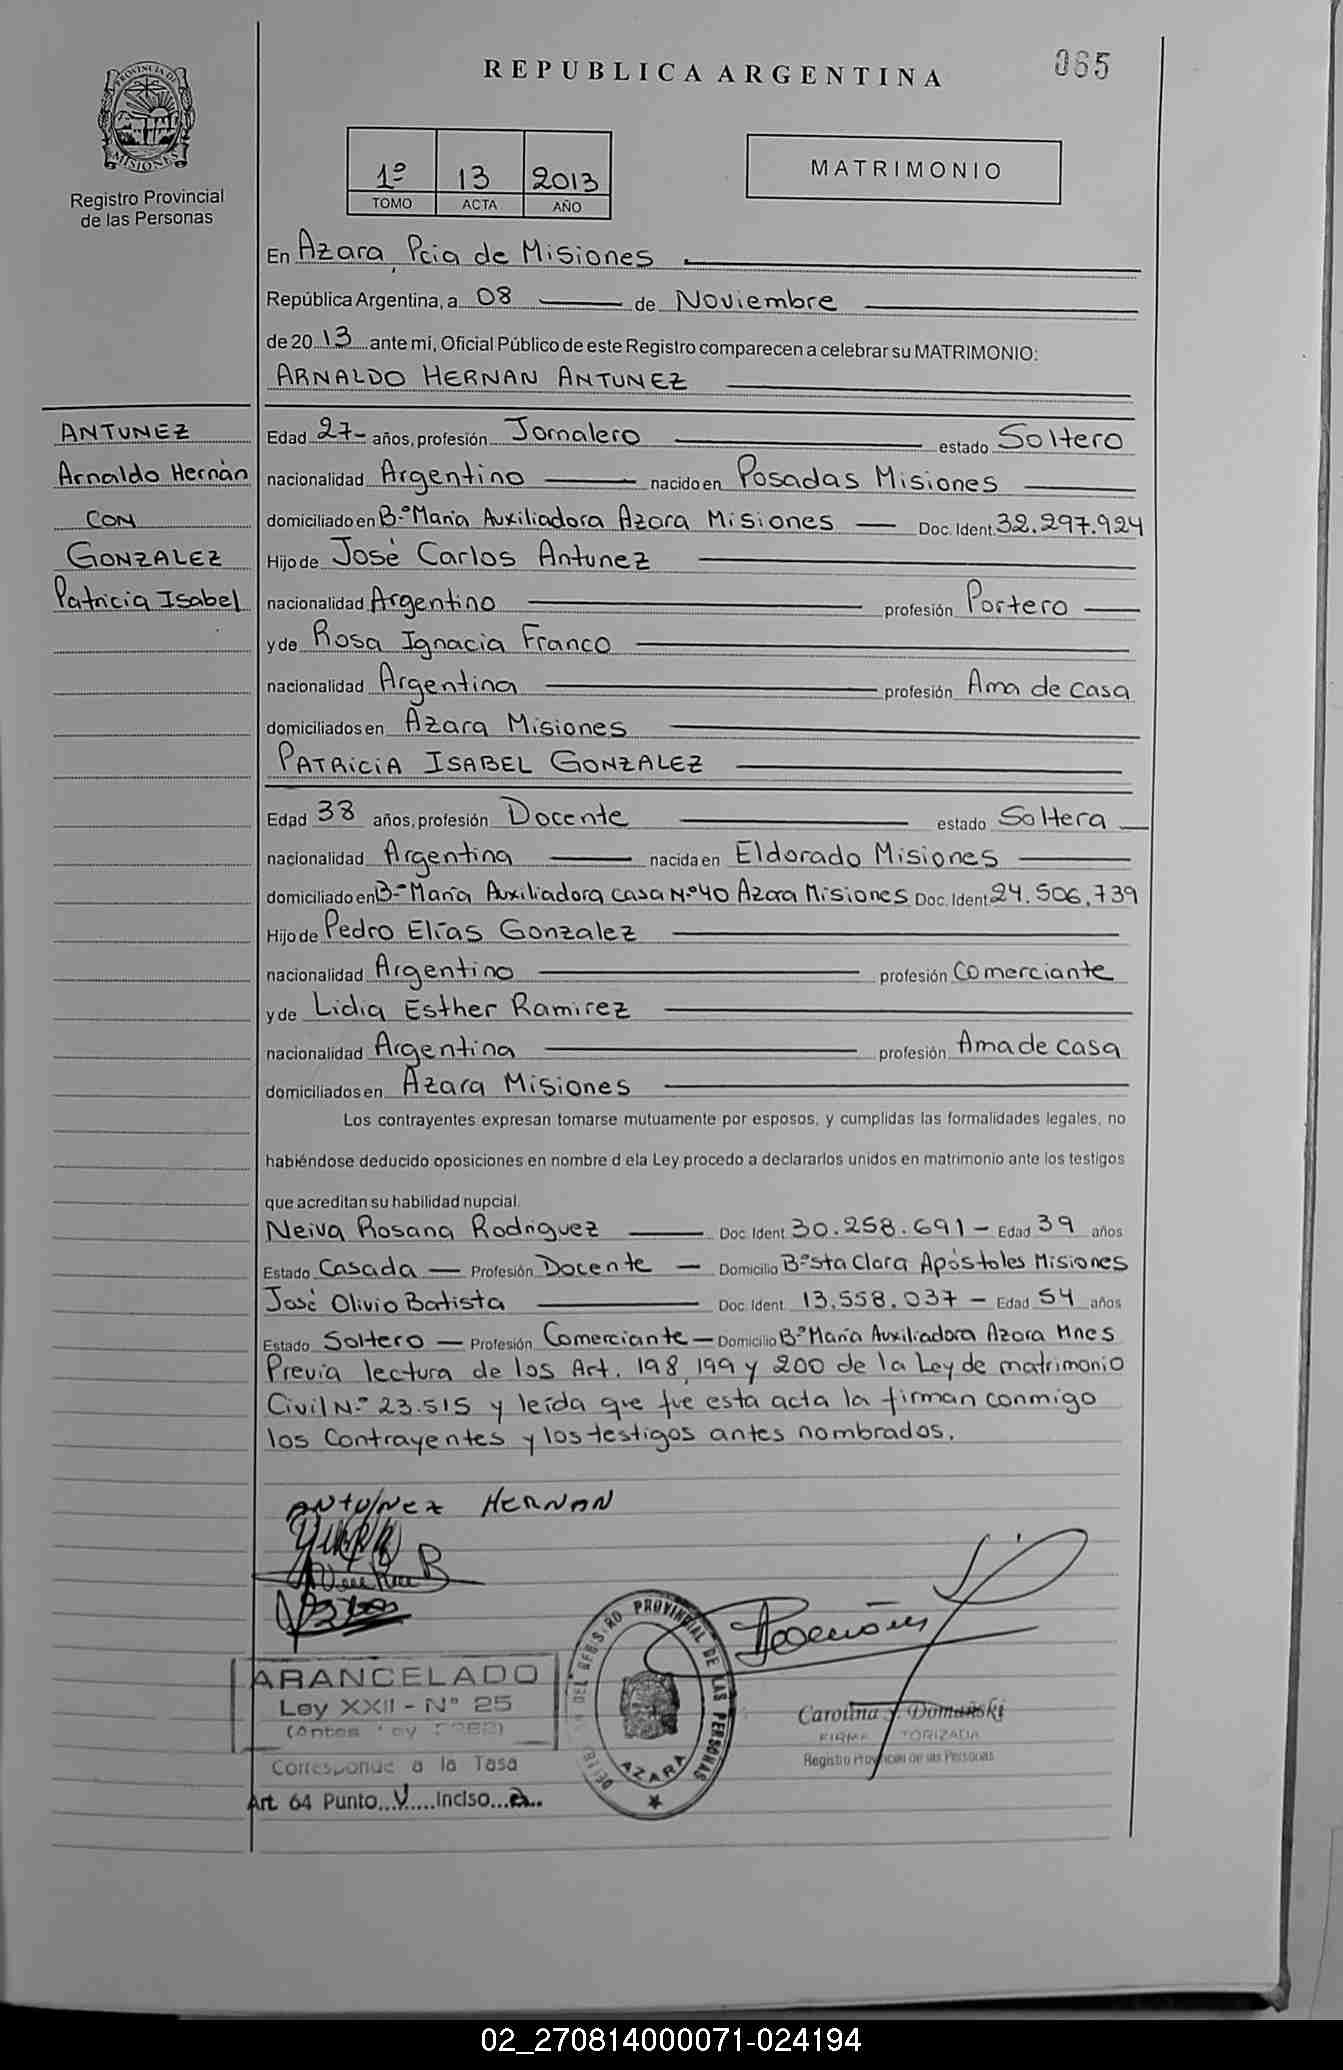 REPUBLICA ARGENTINA
065
PROVINCIA DE MISIONES
Registro Provincial
de las Personas
1º 13 2013
TOMO ACTA AÑO
MATRIMONIO
En Azara, Pcia de Misiones
República Argentina, a 08 de Noviembre
de 2013 ante mi, Oficial Público de este Registro comparecen a celebrar su MATRIMONIO:
ARNALDO HERNAN ANTUNEZ
ANTUNEZ
Arnaldo Hernán
CON
GONZALEZ
Patricia Isabel
Edad 27- años, profesión Jornalero estado Soltero
nacionalidad Argentino nacido en Posadas Misiones
domiciliado en Bº María Auxiliadora Azara Misiones Doc. Ident. 32.297.924
Hijo de José Carlos Antunez
nacionalidad Argentino profesión Portero
y de Rosa Ignacia Franco
nacionalidad Argentina profesión Ama de casa
domiciliados en Azara Misiones
PATRICIA ISABEL GONZALEZ
Edad 38 años, profesión Docente estado Soltera
nacionalidad Argentina nacida en Eldorado Misiones
domiciliado en Bº María Auxiliadora casa Nº 40 Azara Misiones Doc. Ident. 24.506.739
Hijo de Pedro Elías Gonzalez
nacionalidad Argentino profesión Comerciante
y de Lidia Esther Ramirez
nacionalidad Argentina profesión Ama de casa
domiciliados en Azara Misiones
Los contrayentes expresan tomarse mutuamente por esposos, y cumplidas las formalidades legales, no
habiéndose deducido oposiciones en nombre d ela Ley procedo a declararlos unidos en matrimonio ante los testigos
que acreditan su habilidad nupcial.
Neiva Rosana Rodriguez Doc. Ident. 30.258.691 - Edad 39 años
Estado Casada - Profesión Docente - Domicilio Bº Sta Clara Apóstoles Misiones
José Olivio Batista Doc. Ident. 13.558.037 - Edad 54 años
Estado Soltero - Profesión Comerciante - Domicilio Bº María Auxiliadora Azara Mnes
Previa lectura de los Art. 198, 199 y 200 de la Ley de matrimonio
Civil Nº 23.515 y leída que fue esta acta la firman conmigo
los Contrayentes y los testigos antes nombrados.
ANTUNEZ HERNAN
ARANCELADO
Ley XXII - N° 25
(Antes Ley
Corresponde a la Tasa
Art. 64 Punto...V.....Inciso...a...
DEL REGISTRO PROVINCIAL DE LAS PERSONAS
AZARA
Carolina Domañski
FIRMA AUTORIZADA
Registro Provincial de las Personas
02_270814000071-024194